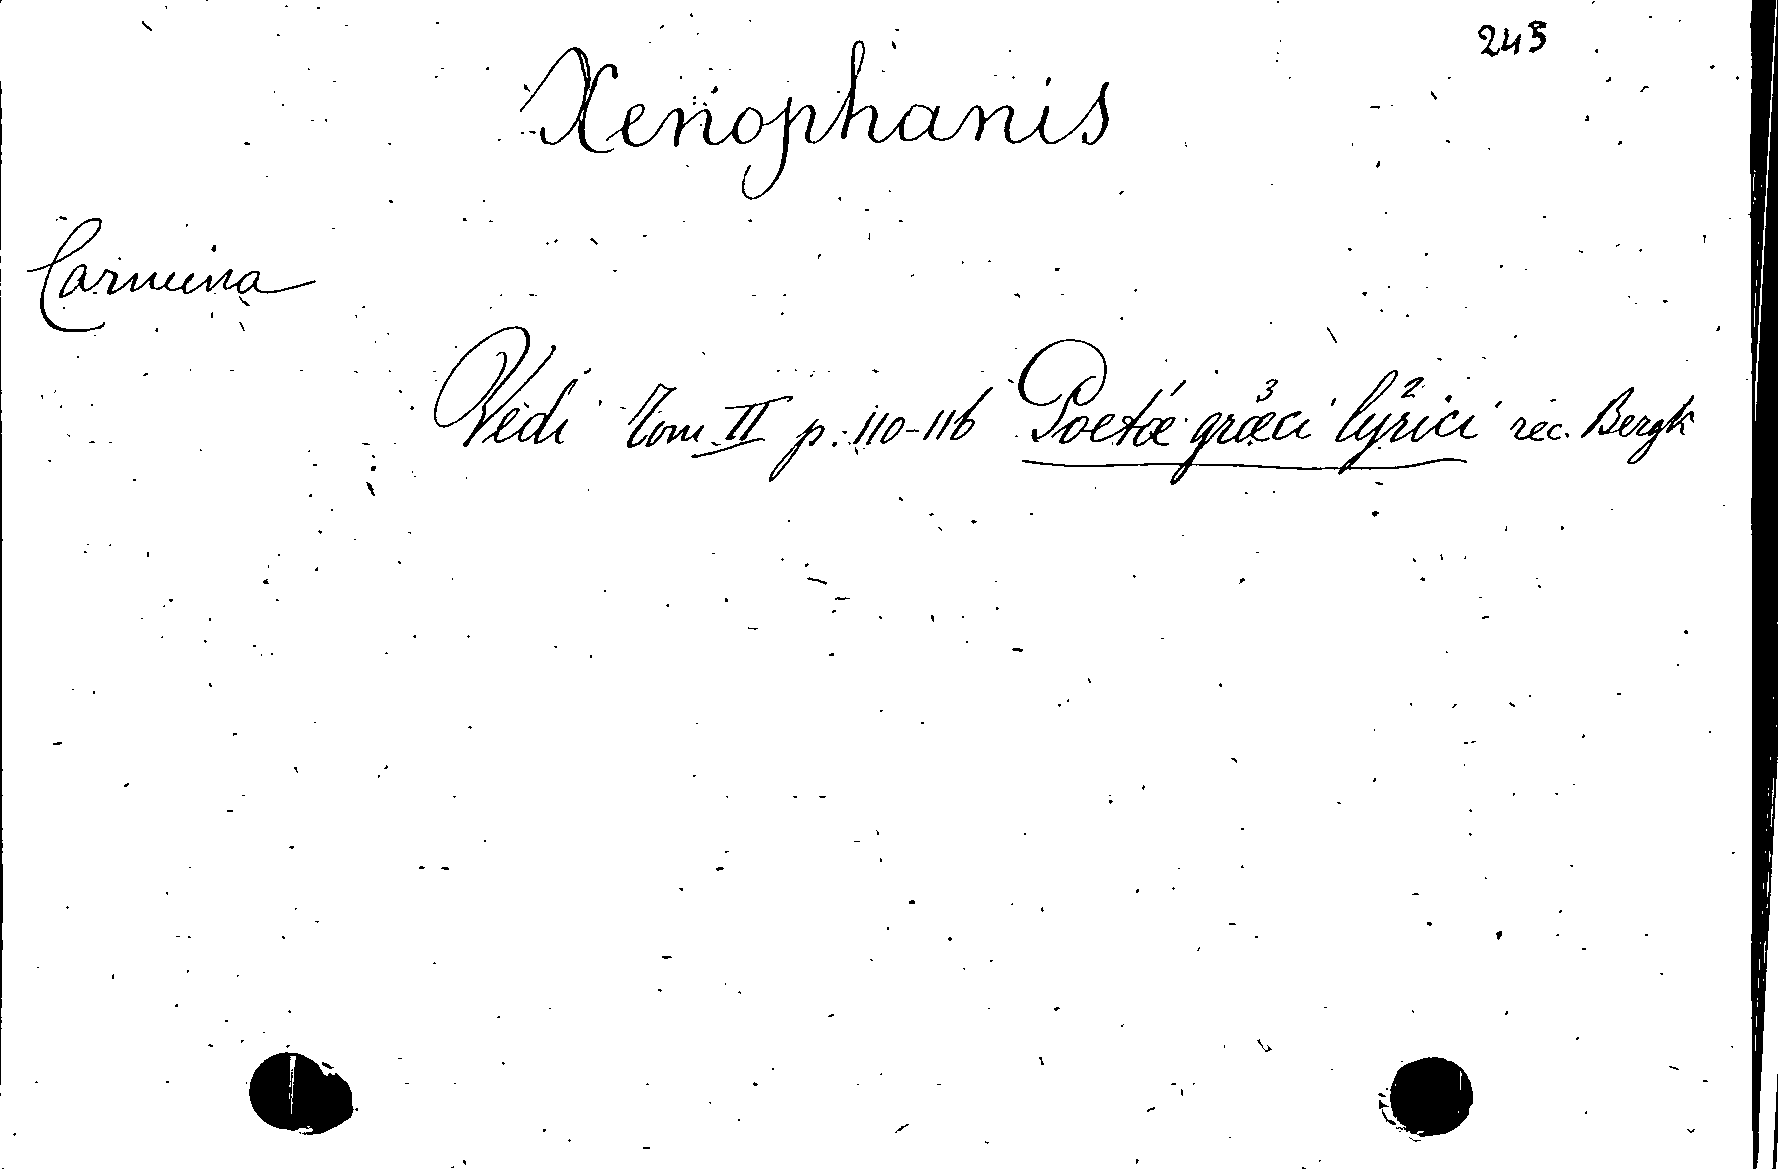 245
Xenophanis
Carmina
Vedi Tom II p. 110-116 Poetæ græci lyrici rec. Bergk